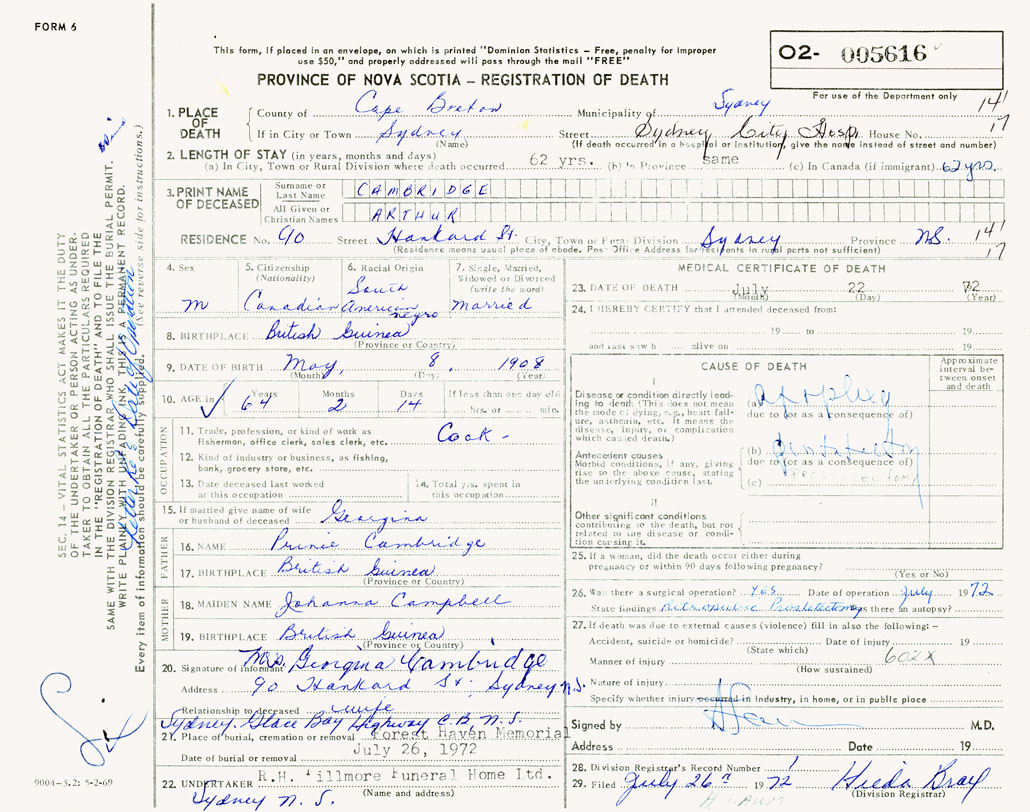 FORM 6
This form, if placed in an envelope, on which is printed "Dominion Statistics – Free, penalty for improper
use $50," and properly addressed will pass through the mail "FREE"
PROVINCE OF NOVA SCOTIA – REGISTRATION OF DEATH
02- 005616
For use of the Department only
14
17
1. PLACE OF DEATH
County of Cape Breton Municipality of Sydney
If in City or Town Sydney Street Sydney City Hosp. House No.
(Name) (If death occurred in a hospital or institution, give the name instead of street and number)
2. LENGTH OF STAY (in years, months and days)
(a) In City, Town or Rural Division where death occurred 62 yrs. (b) In Province same (c) In Canada (if immigrant) 62 yrs.
3. PRINT NAME OF DECEASED
Surname or Last Name CAMBRIDGE
All Given or Christian Names ARTHUR
RESIDENCE No. 90 Street Hankard St. City, Town or Rural Division Sydney Province NS. 14
(Residence means usual place of abode. Post Office Address for residents in rural parts not sufficient) 17
4. Sex
M
5. Citizenship (Nationality)
Canadian
6. Racial Origin
South American negro
7. Single, Married, Widowed or Divorced (write the word)
Married
8. BIRTHPLACE British Guinea
(Province or Country)
9. DATE OF BIRTH May, 8, 1908
(Month) (Day) (Year)
10. AGE in Years Months Days If less than one day old
64 2 14 hrs. or min.
OCCUPATION
11. Trade, profession, or kind of work as
fisherman, office clerk, sales clerk, etc. Cook -
12. Kind of industry or business, as fishing,
bank, grocery store, etc.
13. Date deceased last worked
at this occupation
14. Total yrs. spent in
this occupation
15. If married give name of wife
or husband of deceased Georgina
FATHER
16. NAME Prince Cambridge
17. BIRTHPLACE British Guinea
(Province or Country)
MOTHER
18. MAIDEN NAME Johanna Campbell
19. BIRTHPLACE British Guinea
(Province or Country)
20. Signature of informant Mrs. Georgina Cambridge
Address 90 Hankard St. Sydney N.S.
Relationship to deceased wife
Sydney Glace Bay Highway C.B., N.S.
21. Place of burial, cremation or removal Forest Haven Memorial
Date of burial or removal July 26, 1972
22. UNDERTAKER R.H. Fillmore Funeral Home Ltd.
(Name and address)
Sydney N.S.
MEDICAL CERTIFICATE OF DEATH
23. DATE OF DEATH July 22 72
(Month) (Day) (Year)
24. I HEREBY CERTIFY that I attended deceased from:
19 to 19
and last saw h alive on 19
CAUSE OF DEATH
Approximate interval between onset and death
I
Disease or condition directly leading
to death (This does not mean
the mode of dying, e.g., heart failure,
asthenia, etc. It means the
disease, injury, or complication
which caused death.)
(a)
due to (or as a consequence of)
Antecedent causes
Morbid conditions, if any, giving
rise to the above cause, stating
the underlying condition last.
(b)
due to (or as a consequence of)
(c)
II
Other significant conditions
contributing to the death, but not
related to the disease or condition
causing it.
25. If a woman, did the death occur either during
pregnancy or within 90 days following pregnancy?
(Yes or No)
26. Was there a surgical operation? Yes Date of operation July 1972
State findings Retropubic Prostatectomy Was there an autopsy?
27. If death was due to external causes (violence) fill in also the following: –
Accident, suicide or homicide? Date of injury 19
(State which) 602X
Manner of injury
(How sustained)
Nature of injury
Specify whether injury occurred in Industry, in home, or in public place
Signed by M.D.
Address Date 19
28. Division Registrar's Record Number 1
29. Filed July 26th 1972 Hilda Bray
(Division Registrar)
SEC. 14 – VITAL STATISTICS ACT MAKES IT THE DUTY
OF THE UNDERTAKER OR PERSON ACTING AS UNDERTAKER
TO OBTAIN ALL THE PARTICULARS REQUIRED
IN THE "REGISTRATION OF DEATH" AND TO FILE THE
SAME WITH THE DIVISION REGISTRAR WHO SHALL ISSUE THE BURIAL PERMIT.
WRITE PLAINLY WITH UNFADING INK, THIS IS A PERMANENT RECORD.
Every item of information should be carefully supplied. (See reverse side for instructions.)
Letter Re: Date of Operation
9004-3.2: 5-2-69